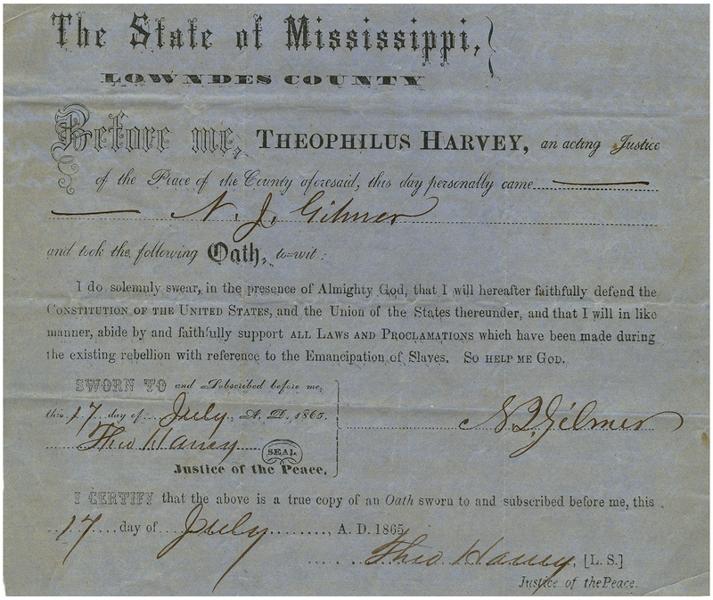 The State of Mississippi,
LOWNDES COUNTY
Before me, THEOPHILUS HARVEY, an acting Justice
of the Peace of the County aforesaid, this day personally came
N. J. Gilmer
and took the following Oath, to=wit:
I do solemnly swear, in the presence of Almighty God, that I will hereafter faithfully defend the
CONSTITUTION OF THE UNITED STATES, and the Union of the States thereunder, and that I will in like
manner, abide by and faithfully support ALL LAWS AND PROCLAMATIONS which have been made during
the existing rebellion with reference to the Emancipation of Slaves. SO HELP ME GOD.
SWORN TO and Subscribed before me,
this 17 day of July, A. D. 1865.
N J Gilmer
Theo Harvey
SEAL
Justice of the Peace.
I CERTIFY that the above is a true copy of an Oath sworn to and subscribed before me, this
17 day of July, A. D. 1865
Theo Harvey, [L. S.]
Justice of the Peace.